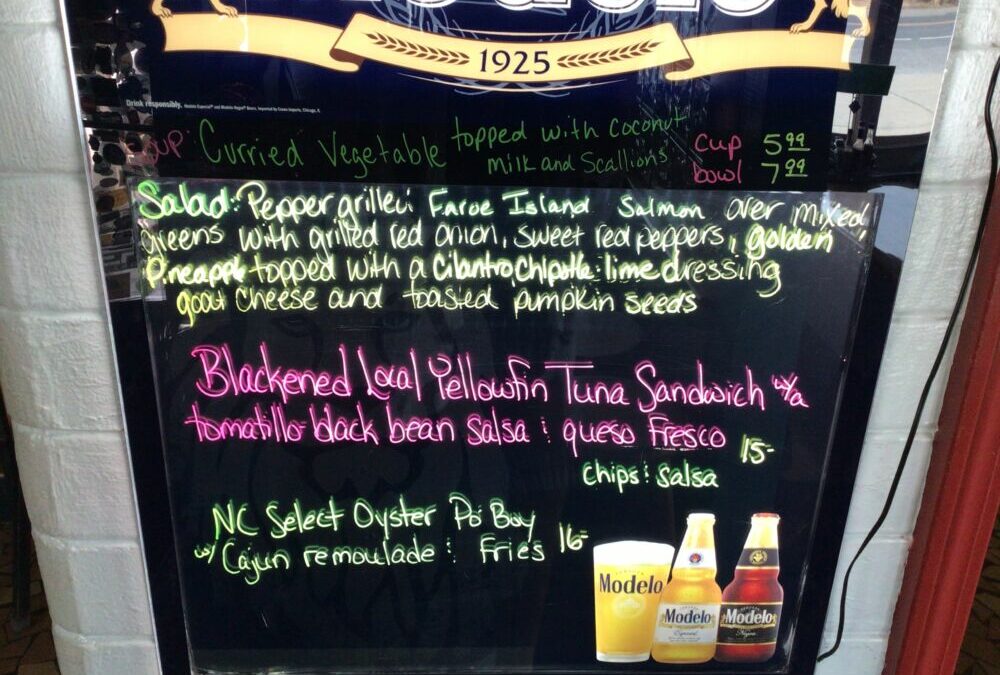 1925
Drink responsibly.
Soup Curried Vegetable topped with Coconut
milk and Scallions
Cup 5.99
bowl 7.99
Salad: Pepper grilled Faroe Island Salmon over mixed
greens with grilled red onion, sweet red peppers, golden
Pineapple topped with a Cilantro Chipotle lime dressing
goat cheese and toasted pumpkin seeds
Blackened Local Yellowfin Tuna Sandwich w/a
tomatillo black bean salsa : queso Fresco 15-
Chips : Salsa
NC Select Oyster Po Boy
w/ Cajun remoulade : Fries 16-
Modelo
Modelo
Especial
Modelo
Negra